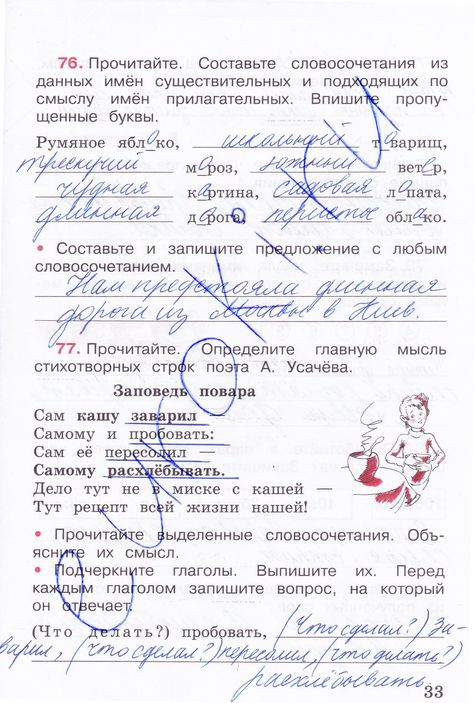 76. Прочитайте. Составьте словосочетания из
данных имён существительных и подходящих по
смыслу имён прилагательных. Впишите пропу-
щенные буквы.
Румяное яблоко, школьный товарищ,
трескучий мороз, южный ветер,
чудная картина, садовая лопата,
длинная дорога, перистое облако.
• Составьте и запишите предложение с любым
словосочетанием.
Нам предстояла длинная
дорога из Москвы в Киев.
77. Прочитайте. Определите главную мысль
стихотворных строк поэта А. Усачёва.
Заповедь повара
Сам кашу заварил
Самому и пробовать:
Сам её пересолил —
Самому расхлёбывать.
Дело тут не в миске с кашей —
Тут рецепт всей жизни нашей!
• Прочитайте выделенные словосочетания. Объ-
ясните их смысл.
• Подчеркните глаголы. Выпишите их. Перед
каждым глаголом запишите вопрос, на который
он отвечает.
(Что делать?) пробовать, (Что сделал?) за-
варил, (что сделал?) пересолил, (что делать?)
расхлёбывать.
33